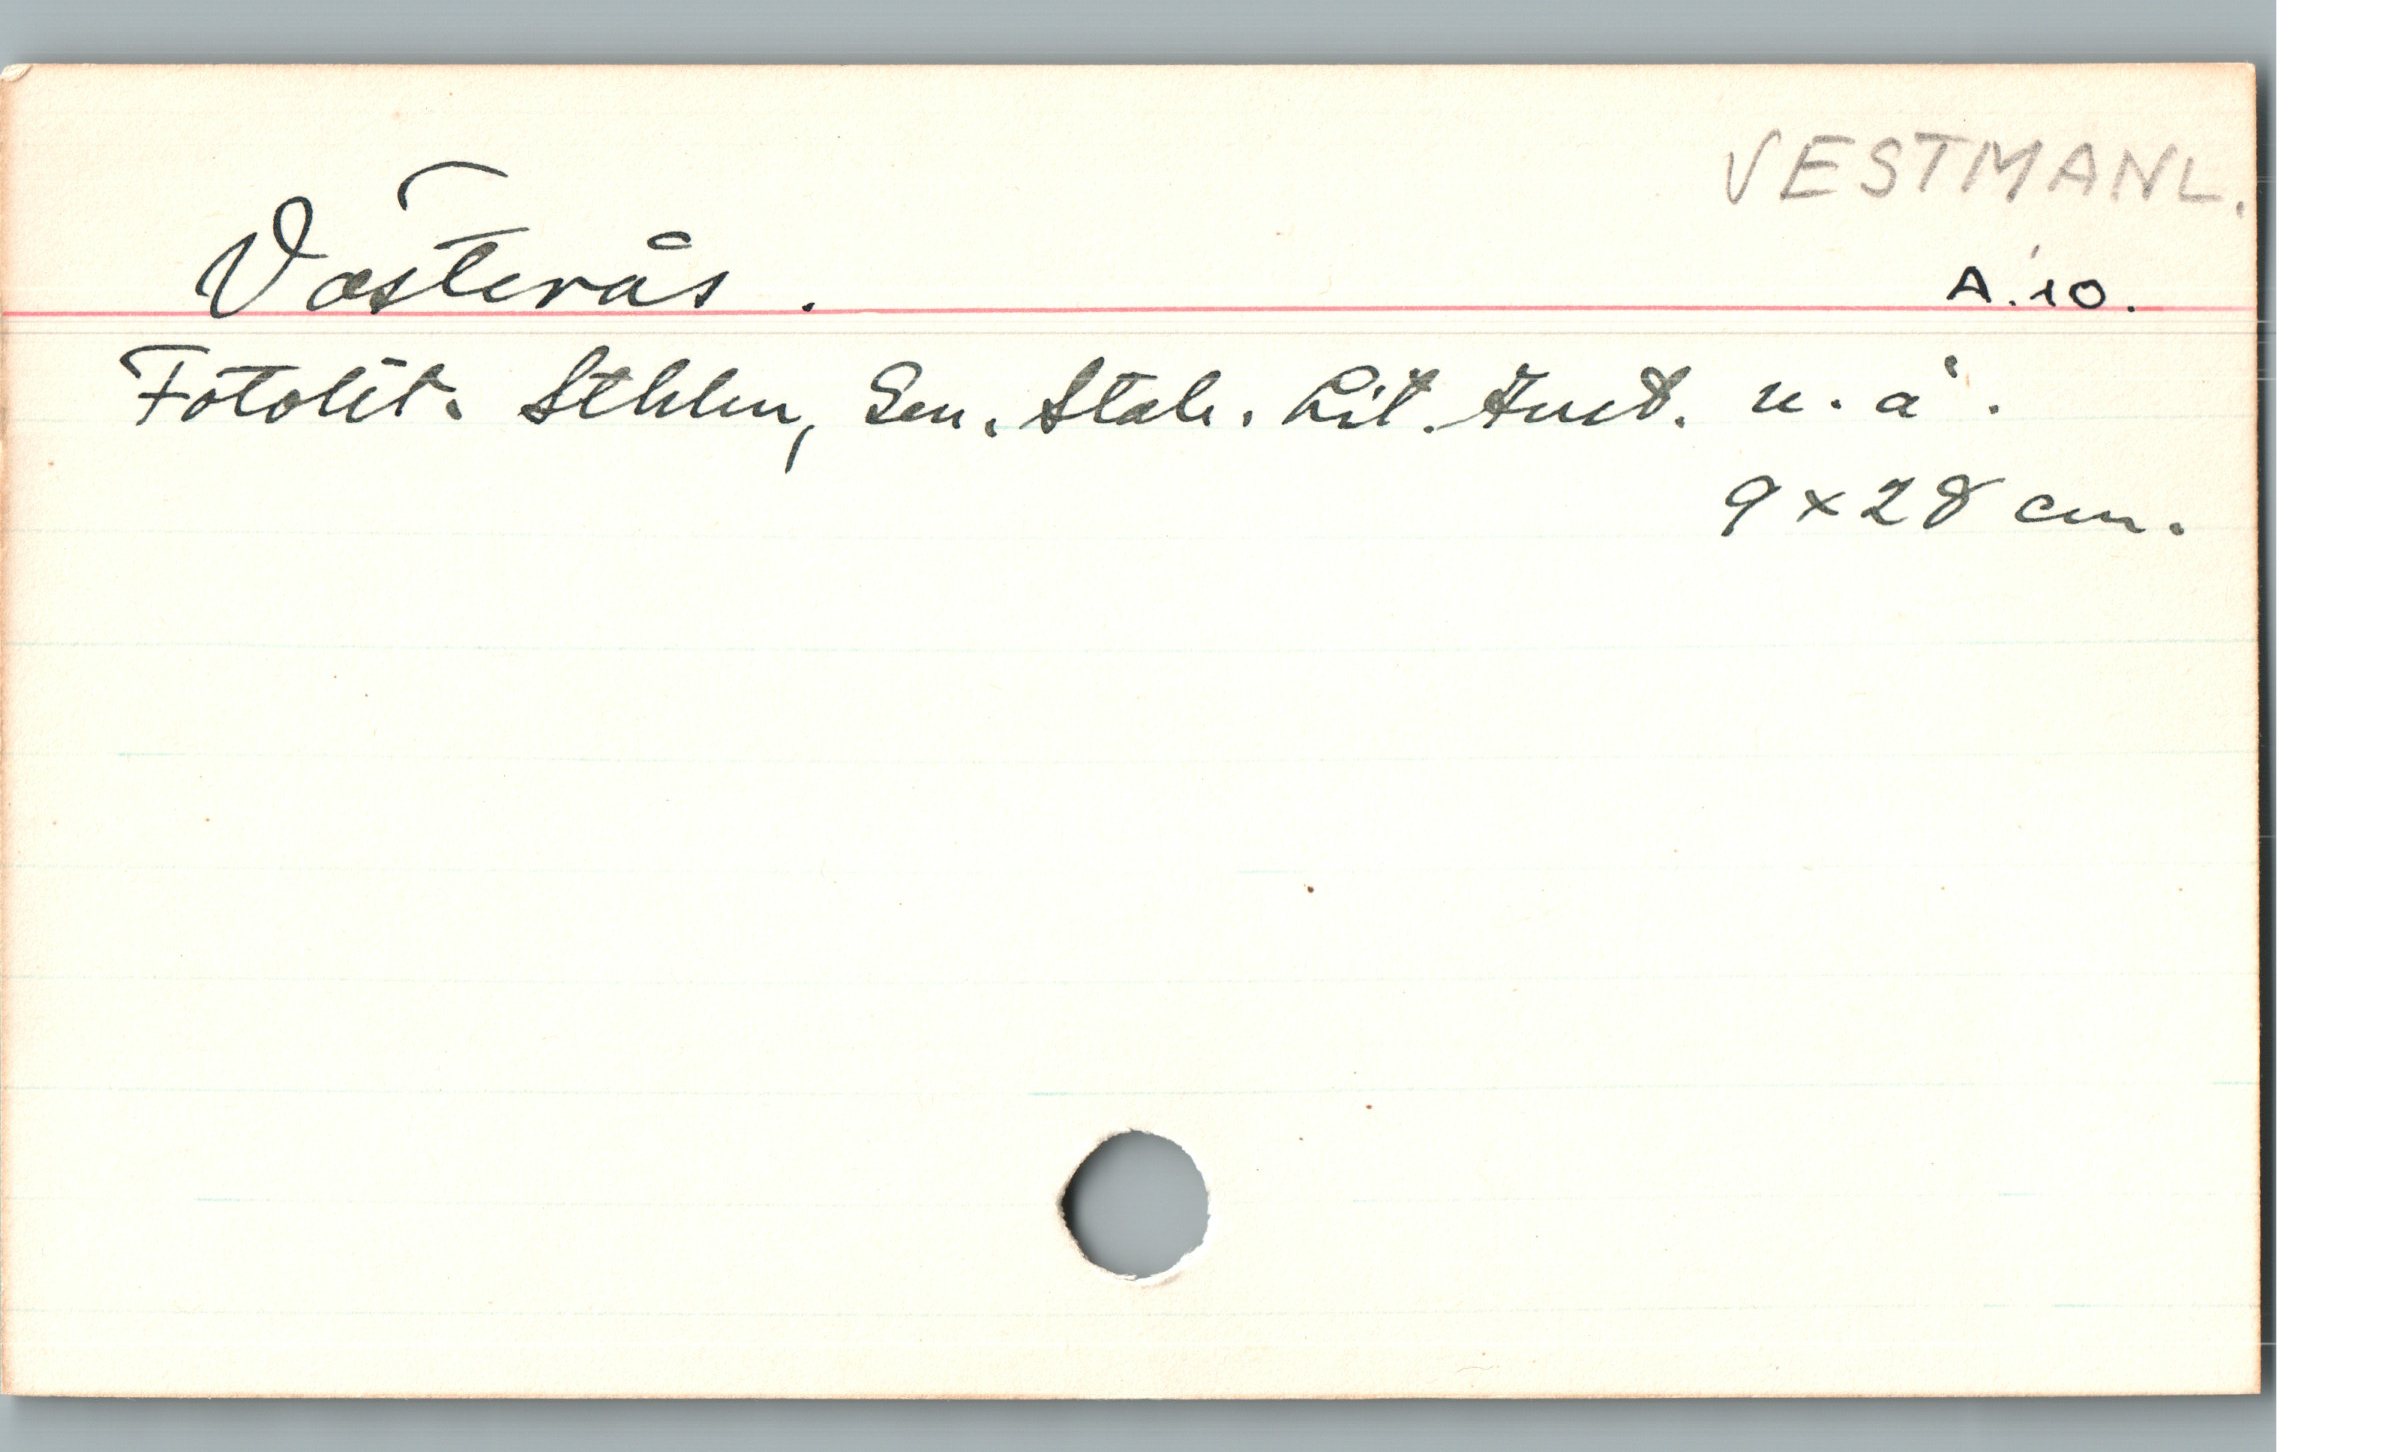 VESTMANL.
Västerås.
A.10.
Fotolit. Sthlm, Gen. Stab. Lit. Inst. u. å.
9x28 cm.